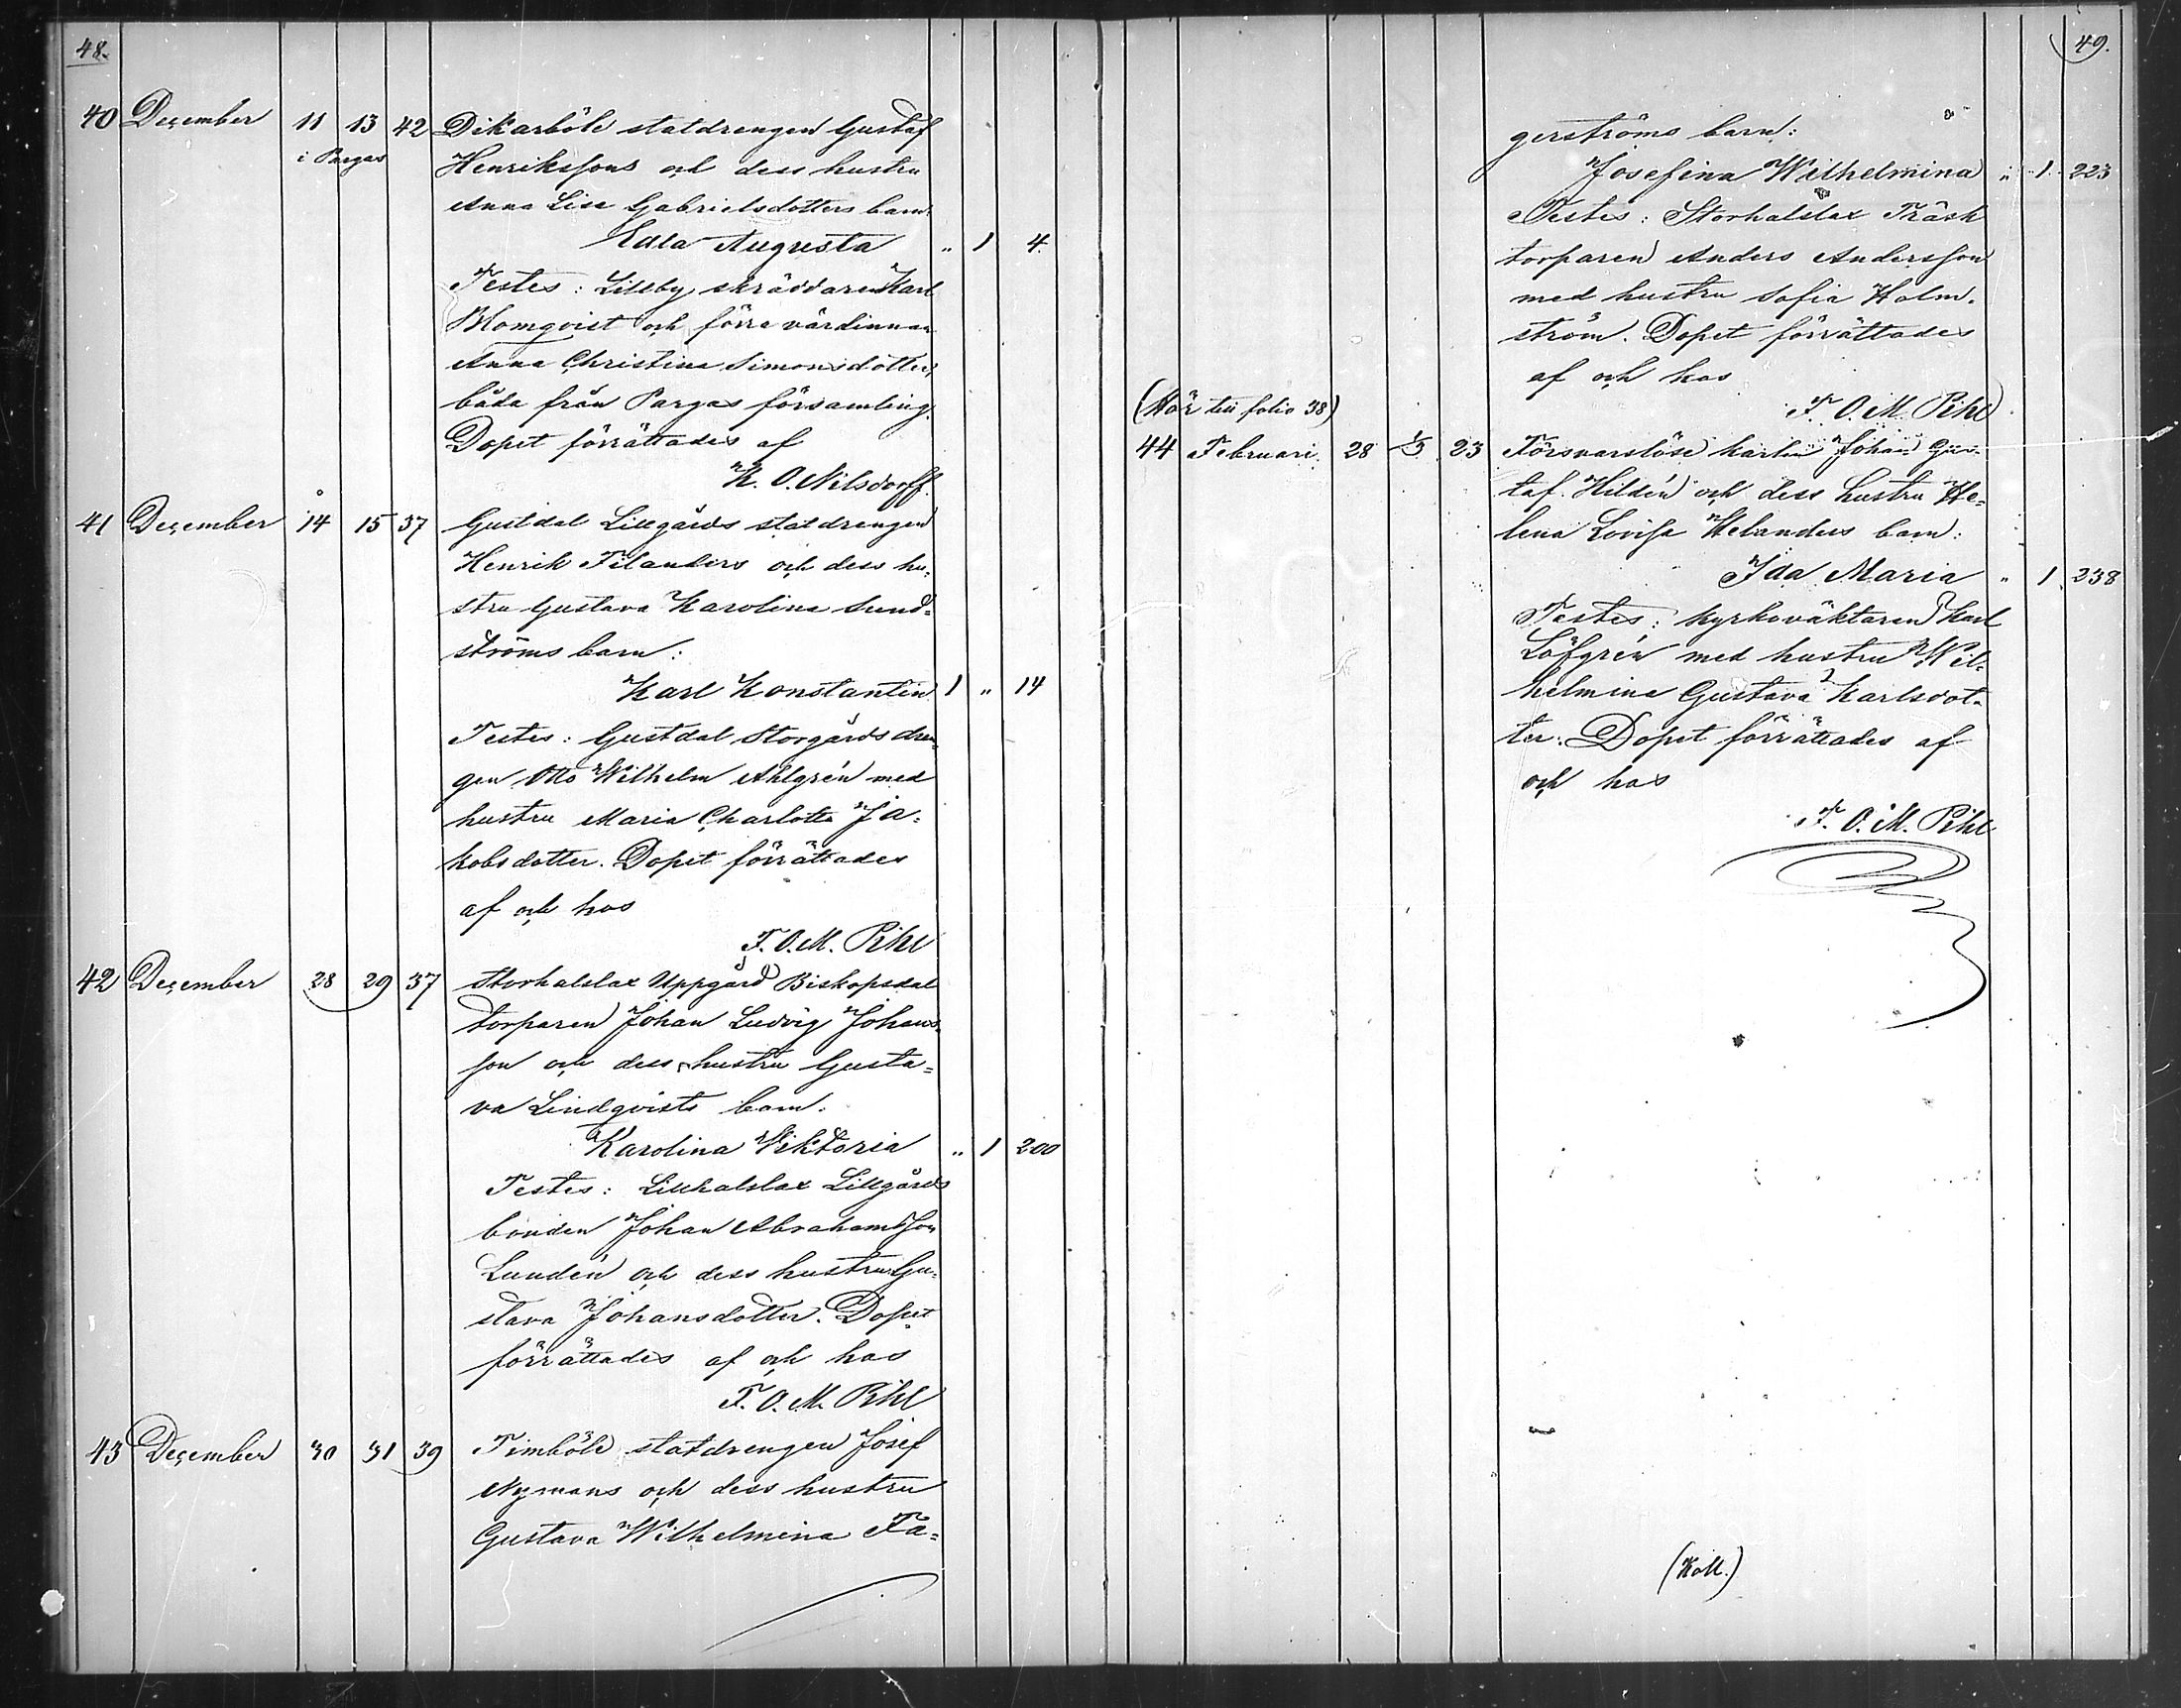 48.
40 December 11 13 42 Dikarböle statdrengen Gustaf
i Pargas Henrikssons och dess hustru
Anna Lisa Gabrielsdotters barn:
Edla Augusta " 1 4
Testes: Lillby skräddaren Karl
Blomqvist och förra värdinnan
Anna Christina Simonsdotter,
båda från Pargas församling.
Dopet förrättades af
K. O. Nilsdorff.
41 December 14 15 37 Gustdal Lillgårds statdrengen
Henrik Filanders och dess hu-
stru Gustava Karolina Sund-
ströms barn:
Karl Konstantin 1 " 14
Testes: Gustdal Storgårds dren-
gen Otto Wilhelm Ahlgrén med
hustru Maria Charlotta Ja-
kobsdotter. Dopet förrättades
af och hos
F. O. M. Pihl
42 December 28 29 37 Storhalslax Uppgård Biskopsdal
torparen Johan Ludvig Johans-
son och dess hustru Gusta-
va Lindqvists barn:
Karolina Wiktoria " 1 200
Testes: Lillhalslax Lillgårds
bonden Johan Abrahamsson
Lundén och dess hustru Gu-
stava Johansdotter. Dopet
förrättades af och hos
F. O. M. Pihl
43 December 30 31 39 Timböle statdrengen Josef
Nymans och dess hustru
Gustava Wilhelmina Fa-
49.
gerströms barn:
Josefina Wilhelmina " 1 223
Testes: Storhalslax Träsk
torparen Anders Andersson
med hustru Sofia Holm-
ström. Dopet förrättades
af och hos
F. O. M. Pihl
(Hör till folio 38)
44 Februari 28 1/3 23 Försvarslöse karlen Johan Gus-
taf Hildén och dess hustru He-
lena Lovisa Helanders barn:
Ida Maria " 1 238
Testes: Kyrkoväktaren Karl
Löfgrén med hustru Wil-
helmina Gustava Karlsdot-
ter. Dopet förrättades af
och hos
F. O. M. Pihl
(Koll.)